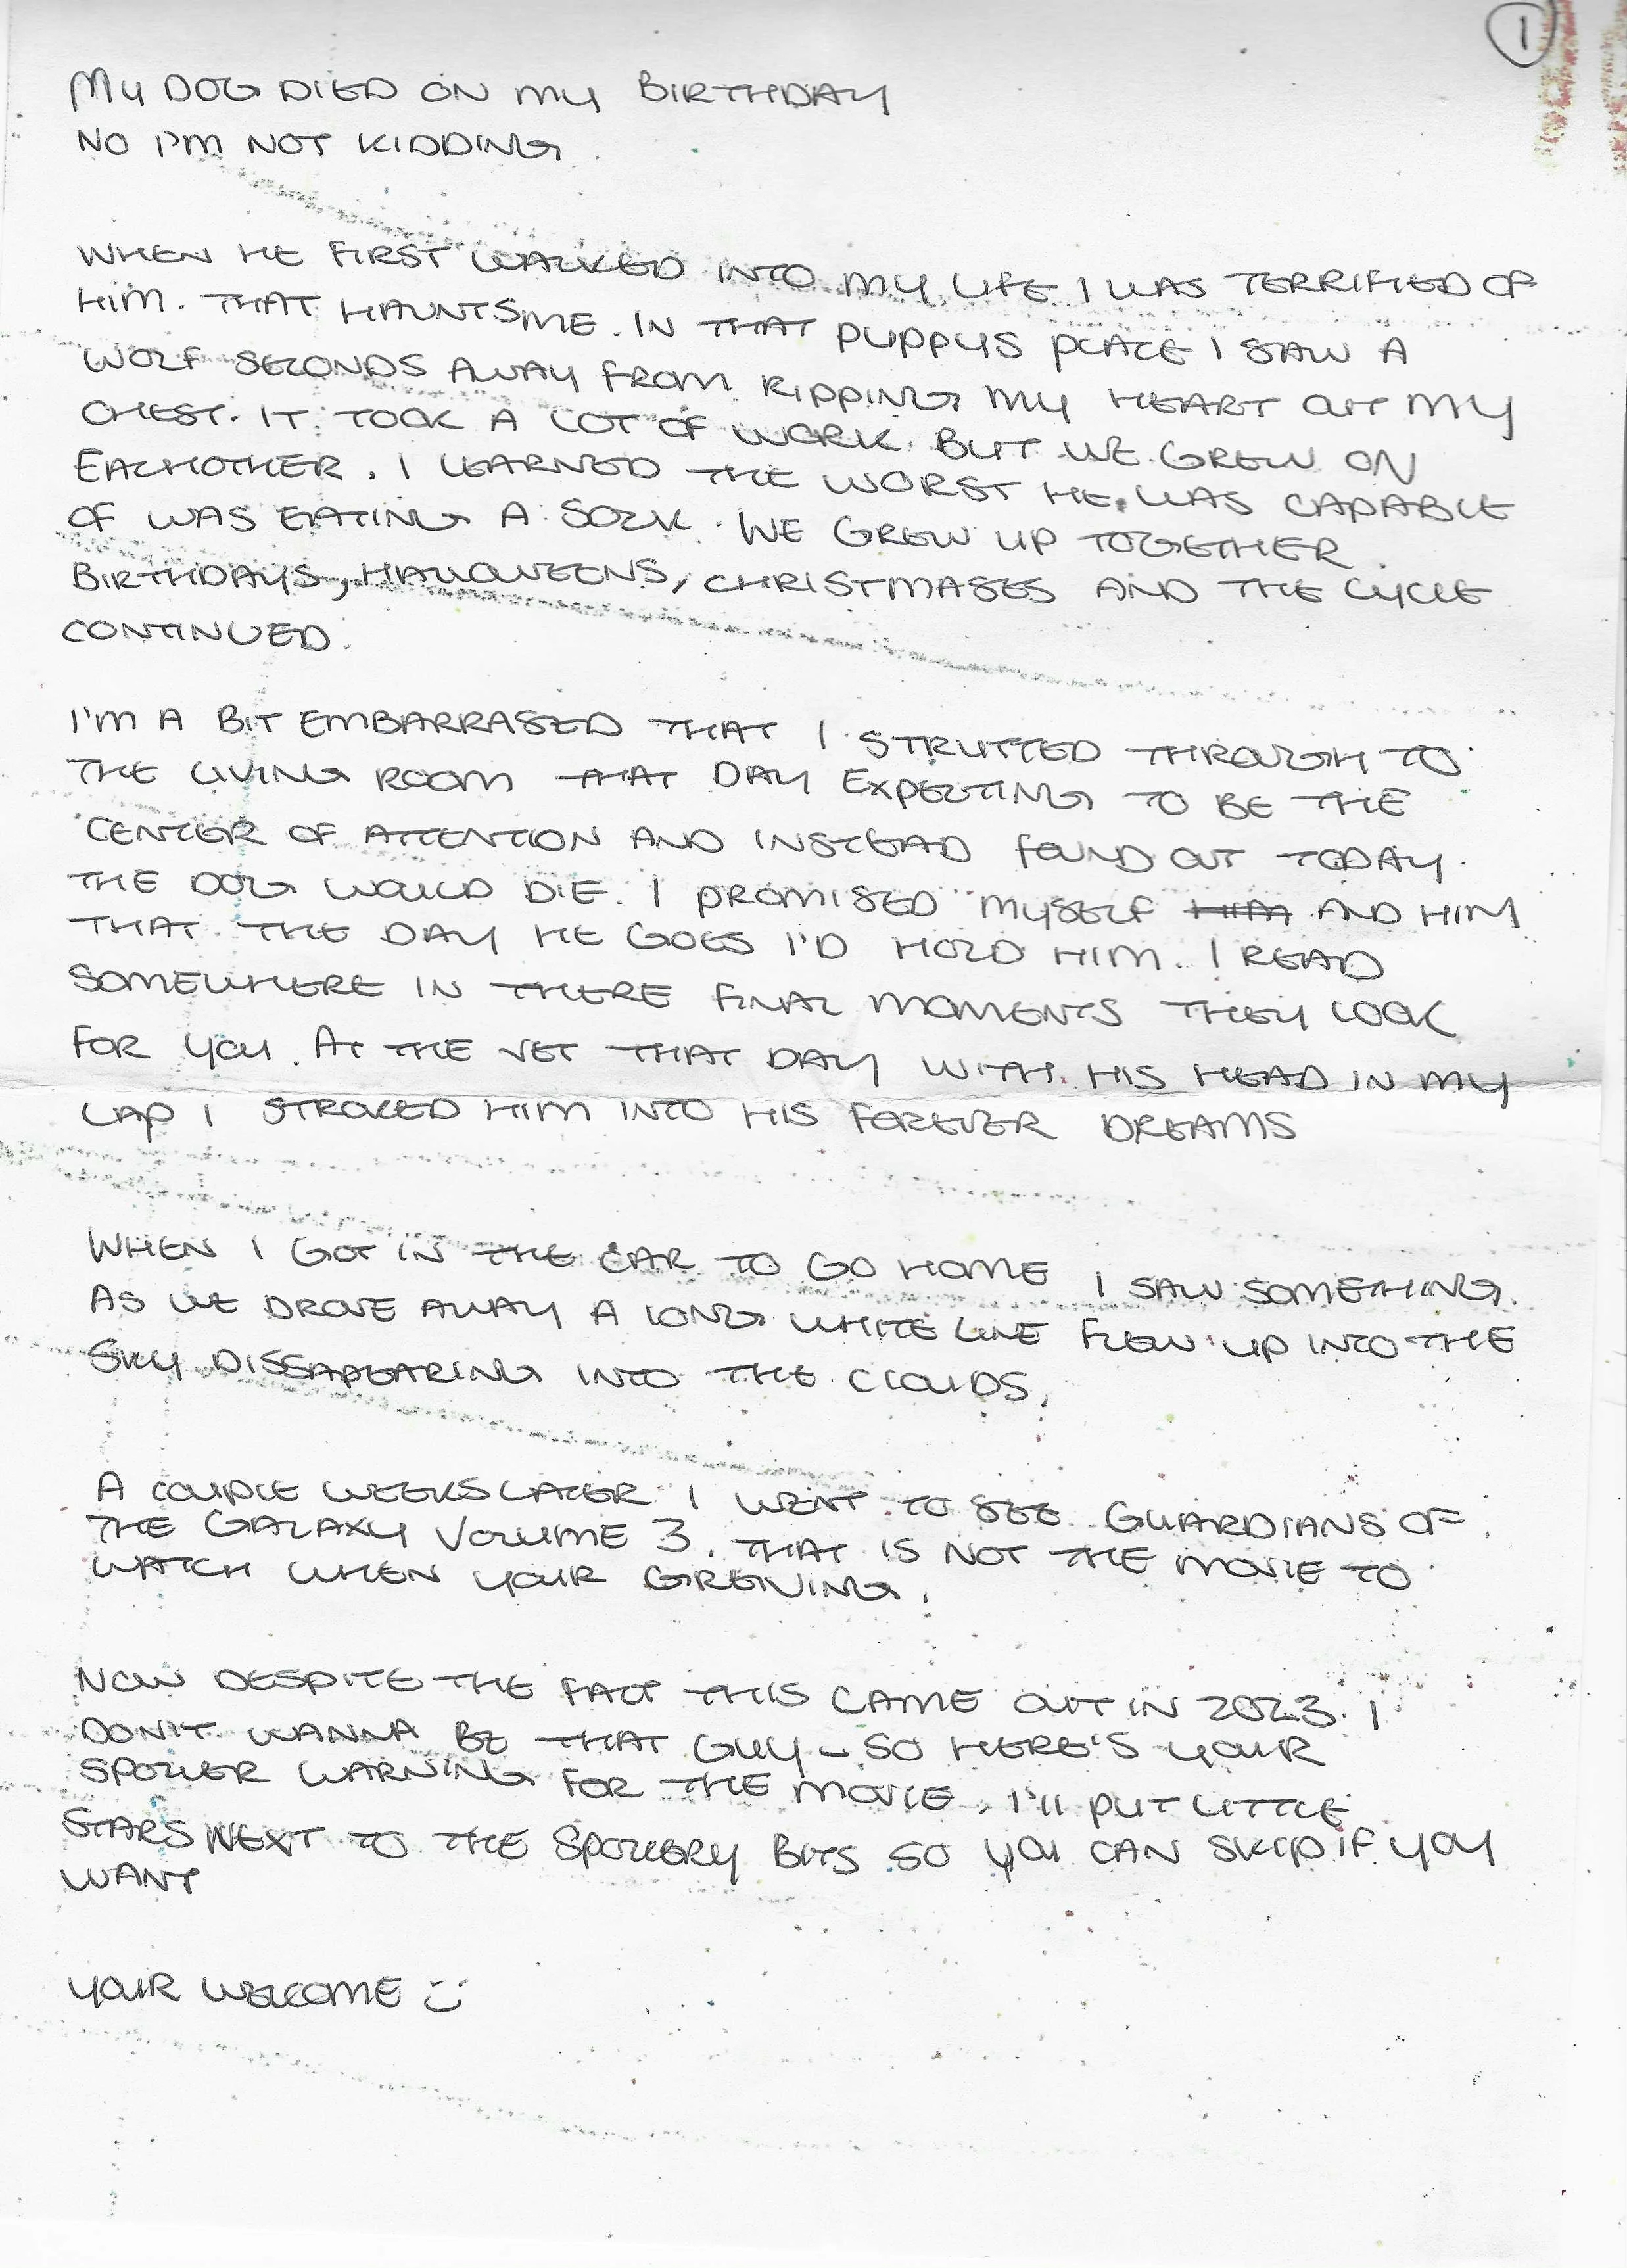 1
MY DOG DIED ON MY BIRTHDAY
NO I'M NOT KIDDING
WHEN HE FIRST WALKED INTO MY LIFE I WAS TERRIFIED OF
HIM. THAT HAUNTS ME. IN THAT PUPPYS PLACE I SAW A
WOLF SECONDS AWAY FROM RIPPING MY HEART OUT MY
CHEST. IT TOOK A LOT OF WORK. BUT WE GREW ON
EACHOTHER. I LEARNED THE WORST HE WAS CAPABLE
OF WAS EATING A SOCK. WE GREW UP TOGETHER.
BIRTHDAYS, HALLOWEENS, CHRISTMASES AND THE CYCLE
CONTINUED.
I'M A BIT EMBARRASED THAT I STRUTTED THROUGH TO
THE LIVING ROOM THAT DAY EXPECTING TO BE THE
CENTER OF ATTENTION AND INSTEAD FOUND OUT TODAY
THE DOG WOULD DIE. I PROMISED MYSELF HIM AND HIM
THAT THE DAY HE GOES I'D HOLD HIM. I READ
SOMEWHERE IN THERE FINAL MOMENTS THEY LOOK
FOR YOU. AT THE VET THAT DAY WITH HIS HEAD IN MY
LAP I STROKED HIM INTO HIS FOREVER DREAMS
WHEN I GOT IN THE CAR TO GO HOME I SAW SOMETHING.
AS WE DROVE AWAY A LONG WHITE LINE FLEW UP INTO THE
SKY DISSAPEARING INTO THE CLOUDS.
A COUPLE WEEKS LATER I WENT TO SEE GUARDIANS OF
THE GALAXY VOLUME 3. THAT IS NOT THE MOVIE TO
WATCH WHEN YOUR GREIVING.
NOW DESPITE THE FACT THIS CAME OUT IN 2023. I
DON'T WANNA BE THAT GUY - SO HERE'S YOUR
SPOILER WARNING FOR THE MOVIE. I'll PUT LITTLE
STARS NEXT TO THE SPOILERY BITS SO YOU CAN SKIP IF YOU
WANT
YOUR WELCOME :)